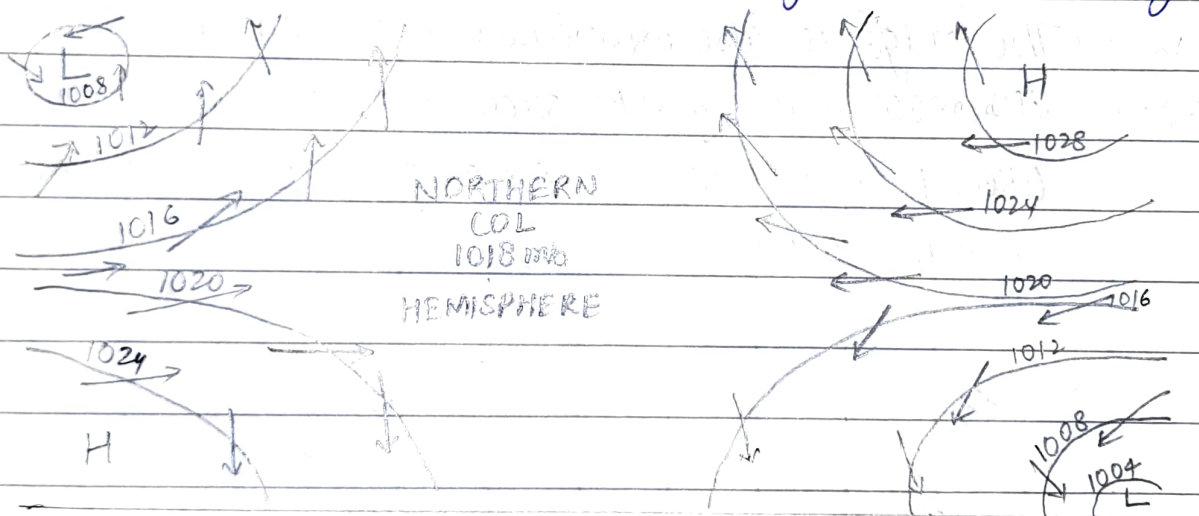 L
1008
1012
1016
1020
1024
H
NORTHERN
COL
1018 mb
HEMISPHERE
H
1028
1024
1020
1016
1012
1008
1004
L